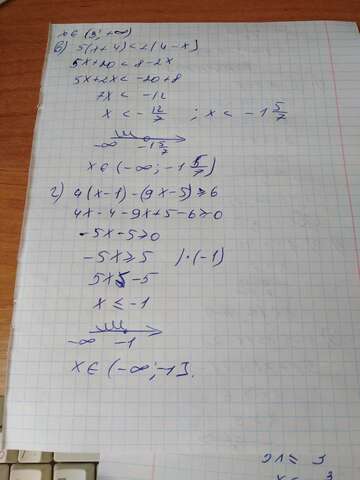 x ∈ (3; +∞)
в) 5(x+4) < 2(4-x)
5x+20 < 8-2x
5x+2x < -20+8
7x < -12
x < -12/7 ; x < -1 5/7
-∞ -1 5/7
x ∈ (-∞; -1 5/7)
г) 4(x-1)-(9x-5) ≥ 6
4x-4-9x+5-6 ≥ 0
-5x-5 ≥ 0
-5x ≥ 5 | ·(-1)
5x ≤ -5
x ≤ -1
-∞ -1
x ∈ (-∞; -1].